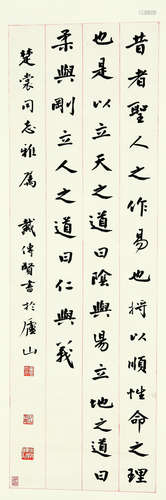 昔者聖人之作易也將以順性命之理
也是以立天之道曰陰與陽立地之道曰
柔與剛立人之道曰仁與義
楚裳同志雅屬 戴傳賢書於廬山